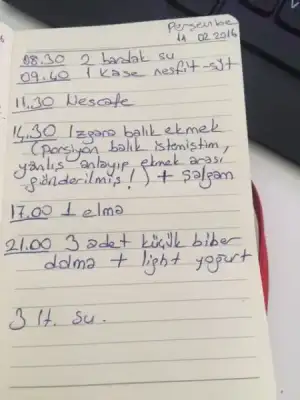 Perşembe
11.02.2016
08.30 2 bardak su
09.40 1 kase nesfit-süt
11.30 Nescafe
14.30 Izgara balık ekmek
(porsiyon balık istemiştim,
yanlış anlayıp ekmek arası
gönderilmiş!) + Şalgam
17.00 1 elma
21.00 3 adet küçük biber
dolma + light yoğurt
3 lt. su.